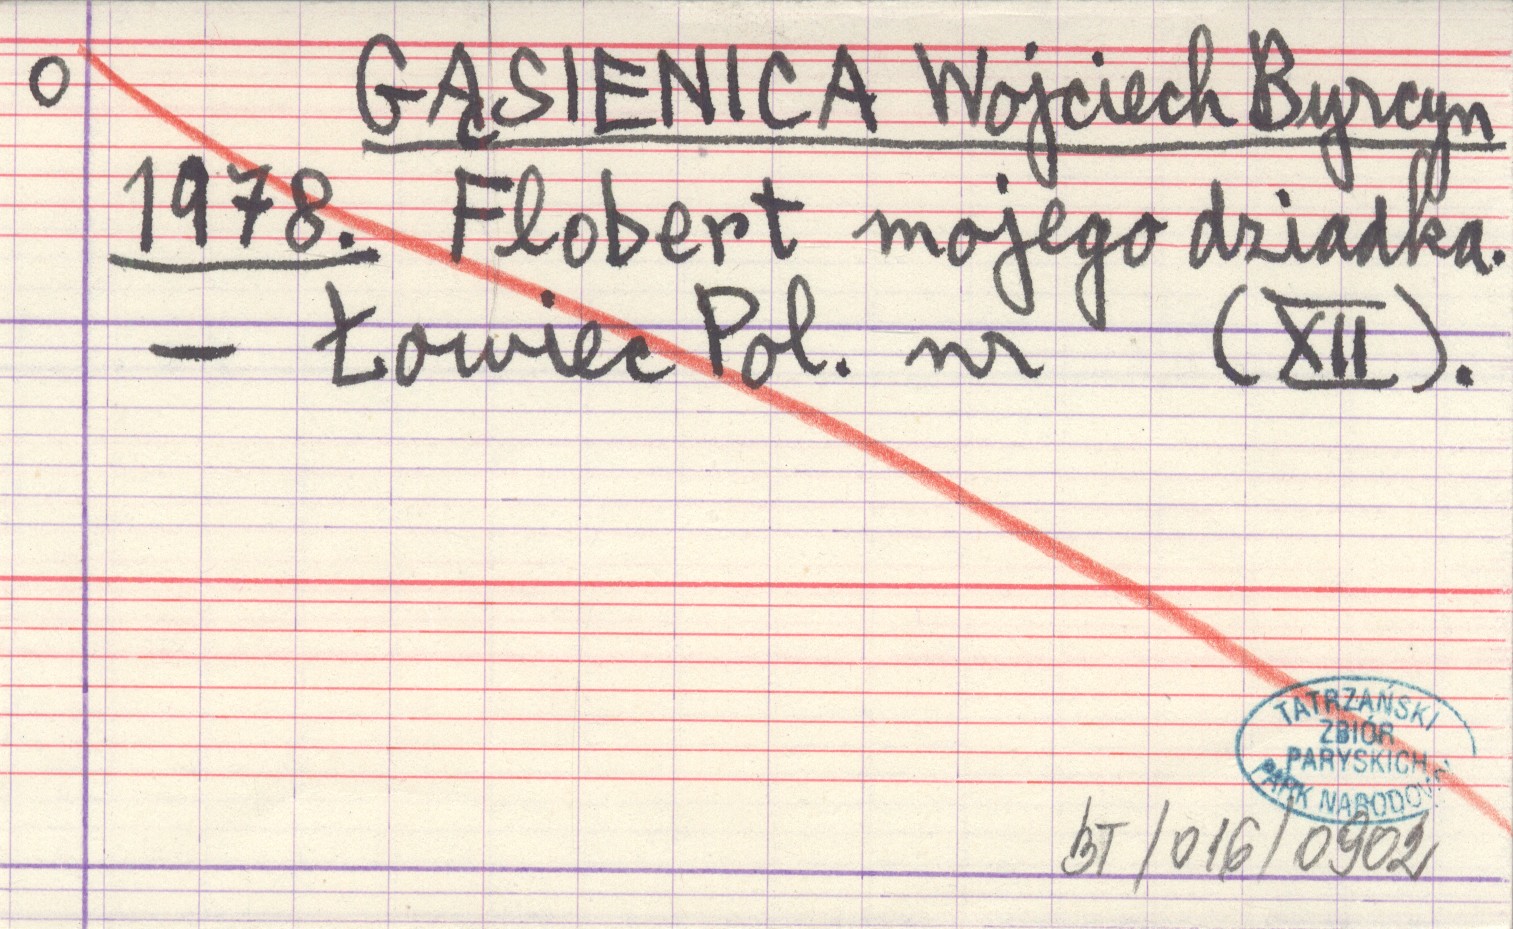 O GĄSIENICA Wojciech Byrcyn
1978. Flobert mojego dziadka.
— Łowiec Pol. nr (XII).
TATRZAŃSKI
ZBIÓR
PARYSKICH
PARK NARODOWY
BT/016/0902